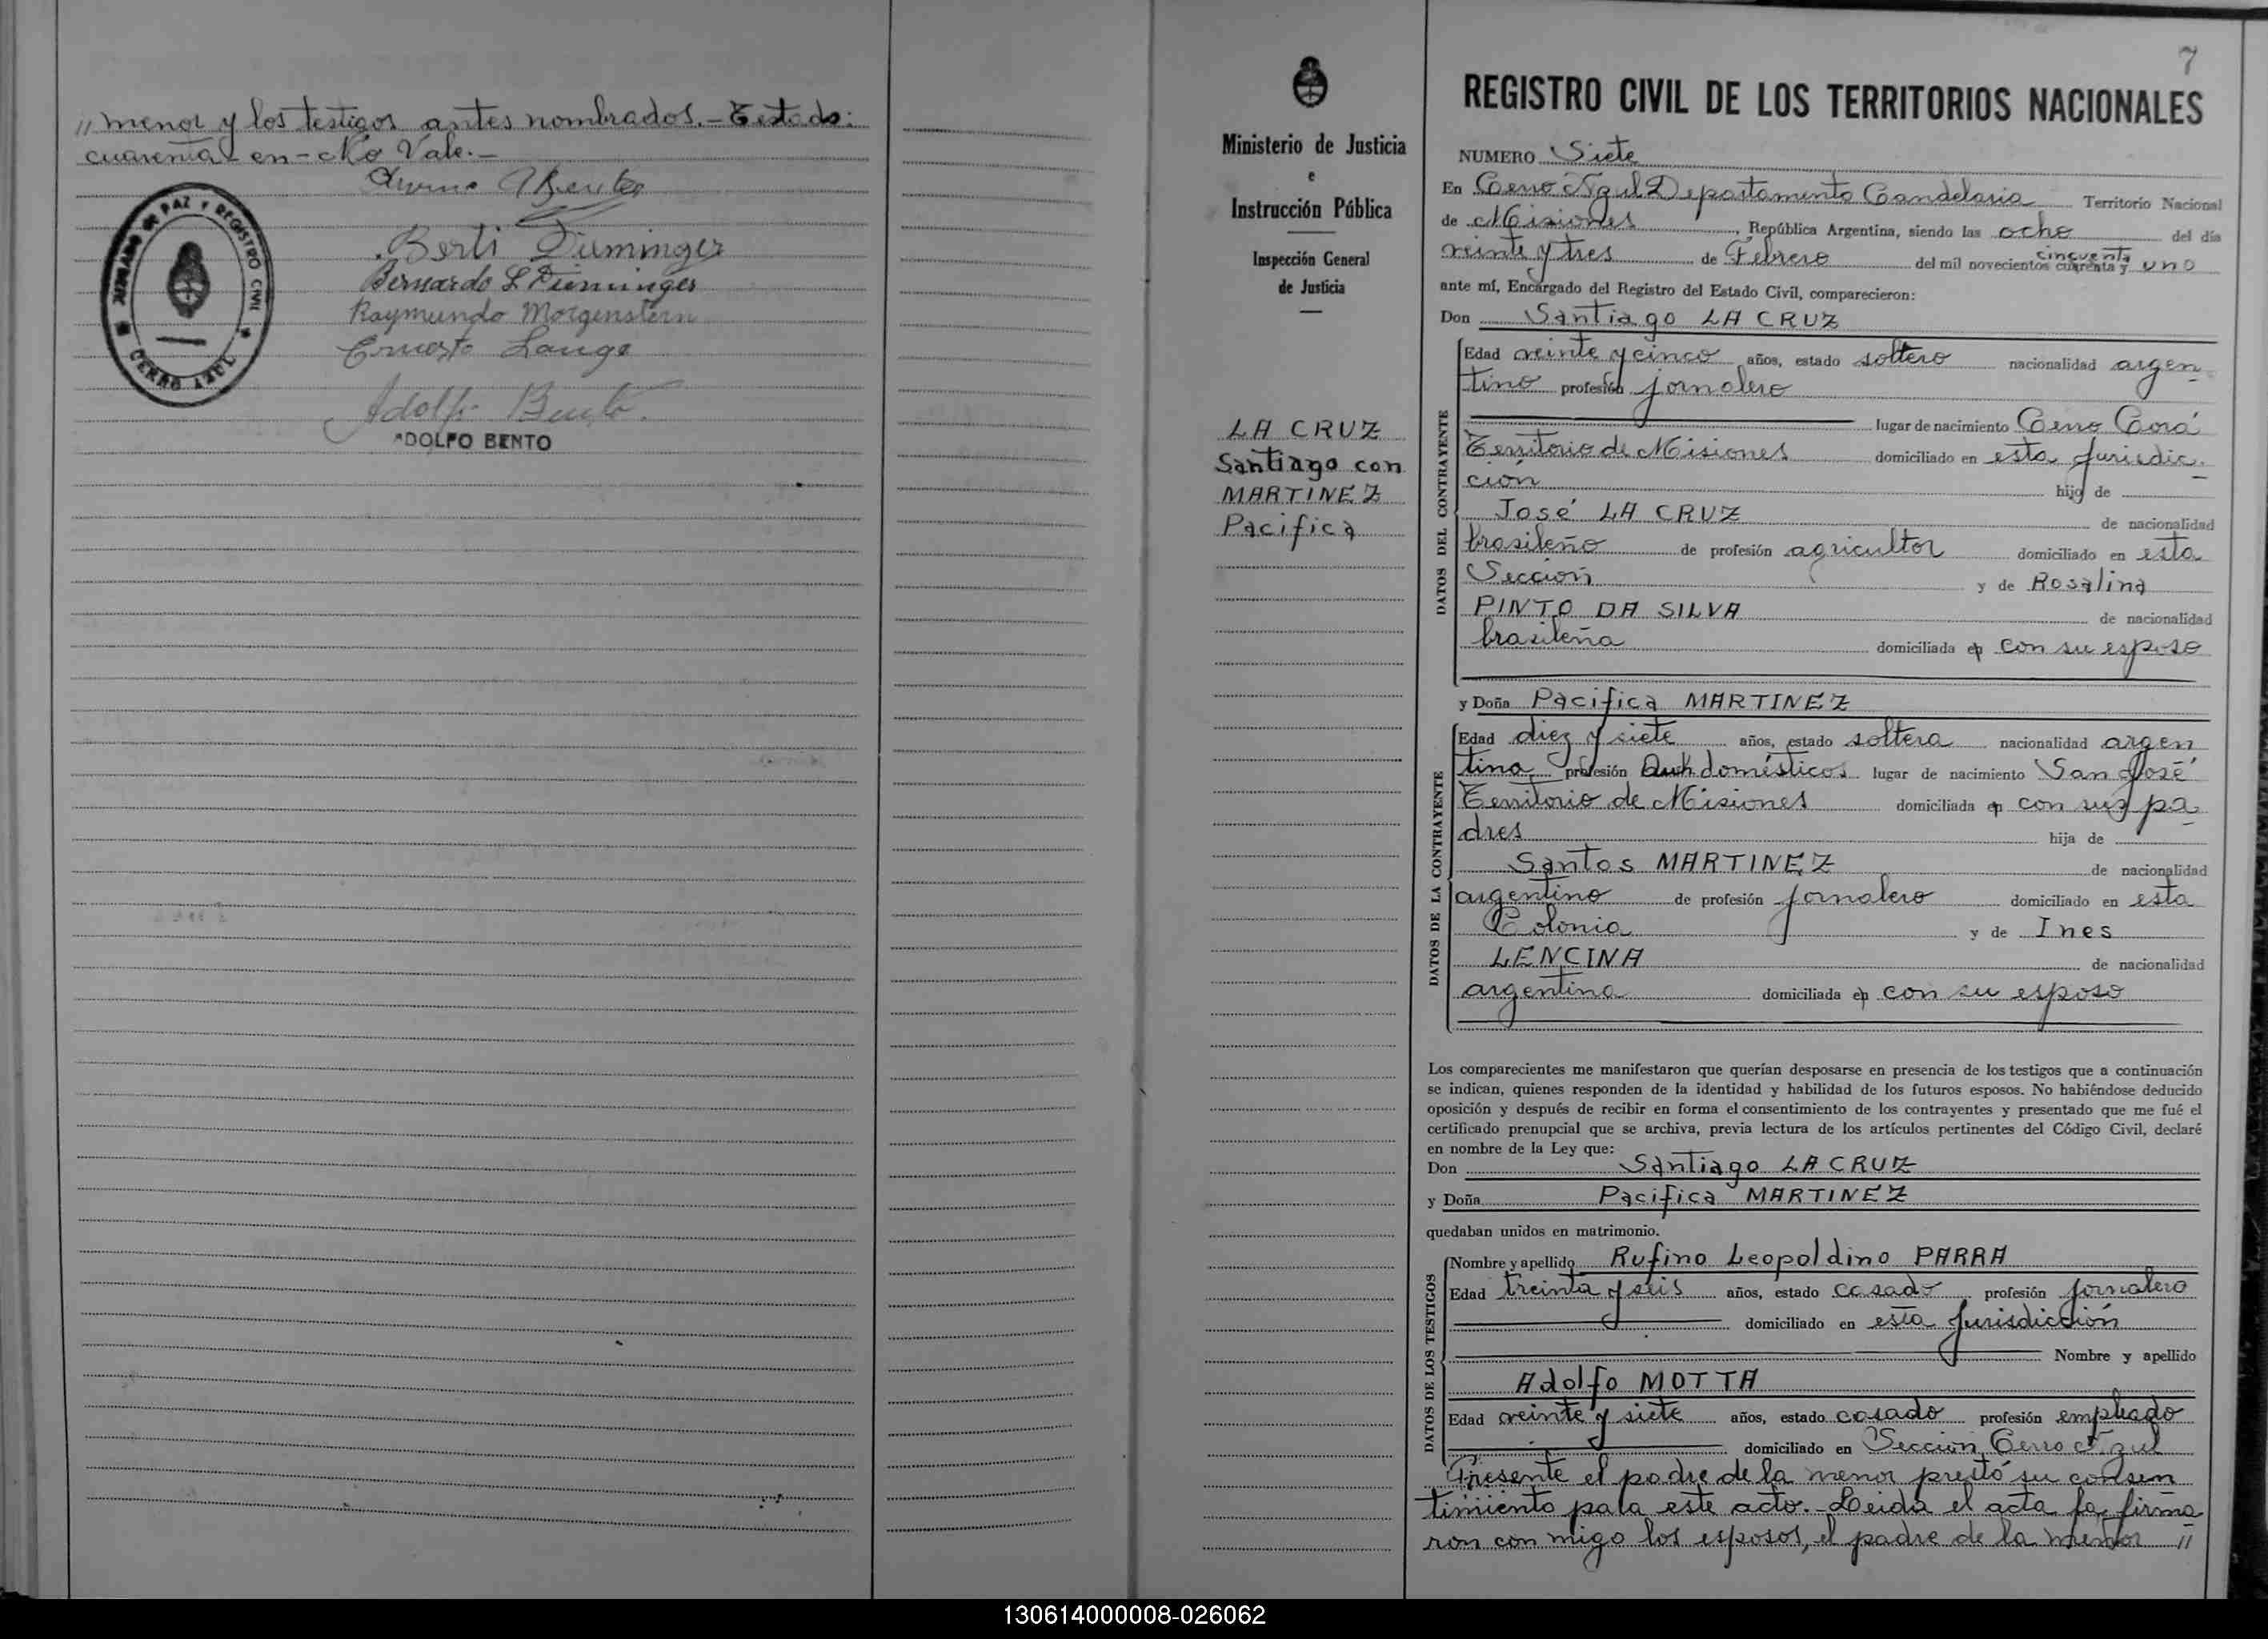 " menor y los testigos antes nombrados.- Testado:
cuarenta - en - No Vale.-
Berti Diminger
Bernardo L Diminger
Raymundo Morgenstern
Ernesto Lange
Adolfo Bento
ADOLFO BENTO
JUZGADO DE PAZ Y REGISTRO CIVIL
CERRO AZUL
7
REGISTRO CIVIL DE LOS TERRITORIOS NACIONALES
Ministerio de Justicia
e
Instrucción Pública
Inspección General
de Justicia
LA CRUZ
Santiago con
MARTINEZ
Pacifica
NUMERO Siete
En Cerro Azul Departamento Candelaria Territorio Nacional
de Misiones, República Argentina, siendo las ocho del día
veinte y tres de Febrero del mil novecientos cuarenta y cincuenta uno
ante mí, Encargado del Registro del Estado Civil, comparecieron:
Don Santiago LA CRUZ
DATOS DEL CONTRAYENTE
Edad veinte y cinco años, estado soltero nacionalidad argen
tino profesión jornalero
lugar de nacimiento Cerro Corá
Territorio de Misiones domiciliado en esta Jurisdic-
ción hijo de
José LA CRUZ de nacionalidad
brasileño de profesión agricultor domiciliado en esta
Sección y de Rosalina
PINTO DA SILVA de nacionalidad
brasileña domiciliada en con su esposo
y Doña Pacifica MARTINEZ
DATOS DE LA CONTRAYENTE
Edad diez y siete años, estado soltera nacionalidad argen
tina profesión Queh domésticos lugar de nacimiento San José
Territorio de Misiones domiciliada en con sus pa
dres hija de
Santos MARTINEZ de nacionalidad
argentino de profesión jornalero domiciliado en esta
Colonia y de Ines
LENCINA de nacionalidad
argentina domiciliada en con su esposo
Los comparecientes me manifestaron que querían desposarse en presencia de los testigos que a continuación
se indican, quienes responden de la identidad y habilidad de los futuros esposos. No habiéndose deducido
oposición y después de recibir en forma el consentimiento de los contrayentes y presentado que me fué el
certificado prenupcial que se archiva, previa lectura de los artículos pertinentes del Código Civil, declaré
en nombre de la Ley que:
Don Santiago LA CRUZ
y Doña Pacifica MARTINEZ
quedaban unidos en matrimonio.
DATOS DE LOS TESTIGOS
Nombre y apellido Rufino Leopoldino PARRA
Edad treinta y seis años, estado casado profesión jornalero
domiciliado en esta Jurisdicción
Nombre y apellido
Adolfo MOTTA
Edad veinte y siete años, estado casado profesión empleado
domiciliado en Sección Cerro Azul
Presente el padre de la menor prestó su consen
timiento para este acto.- Leida el acta la firma
ron con migo los esposos, el padre de la menor "
130614000008-026062